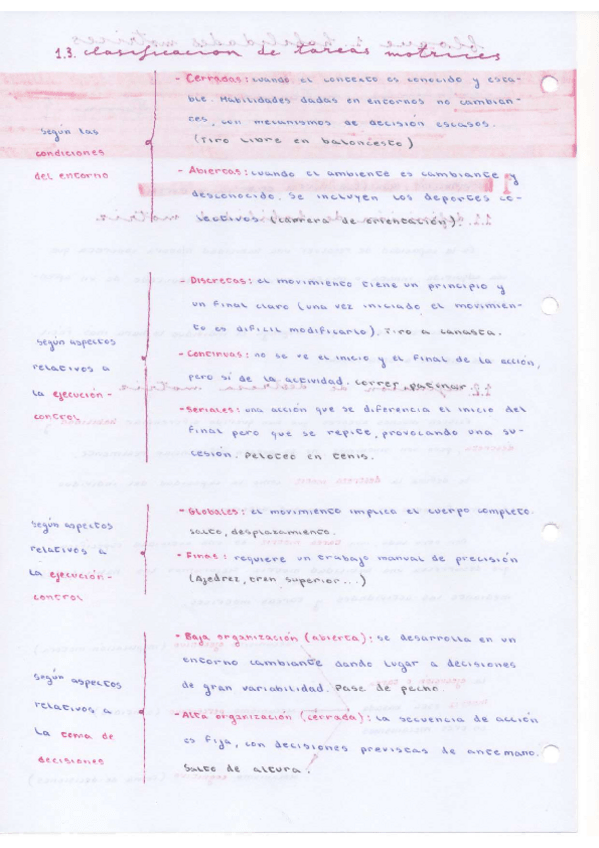 1.3. clasificación de tareas motrices
según las
condiciones
del entorno
- Cerradas: cuando el contexto es conocido y esta-
ble. Habilidades dadas en entornos no cambian-
tes, con mecanismos de decisión escasos.
(Tiro libre en baloncesto)
- Abiertas: cuando el ambiente es cambiante y
desconocido. Se incluyen los deportes co-
lectivos (carrera de orientación).
según aspectos
relativos a
la ejecución-
control
- Discretas: el movimiento tiene un principio y
un final claro (una vez iniciado el movimien-
to es difícil modificarlo). Tiro a canasta.
- Continuas: no se ve el inicio y el final de la acción,
pero sí de la actividad. correr, patinar
- Seriales: una acción que se diferencia el inicio del
final pero que se repite, provocando una su-
cesión. Peloteo en tenis.
según aspectos
relativos a
la ejecución-
control
- Globales: el movimiento implica el cuerpo completo.
salto, desplazamiento.
- Finas: requiere un trabajo manual de precisión
(Ajedrez, tren superior...)
según aspectos
relativos a
la toma de
decisiones
- Baja organización (abierta): se desarrolla en un
entorno cambiante dando lugar a decisiones
de gran variabilidad. Pase de pecho.
- Alta organización (cerrada): la secuencia de acción
es fija, con decisiones previstas de antemano.
Salto de altura.